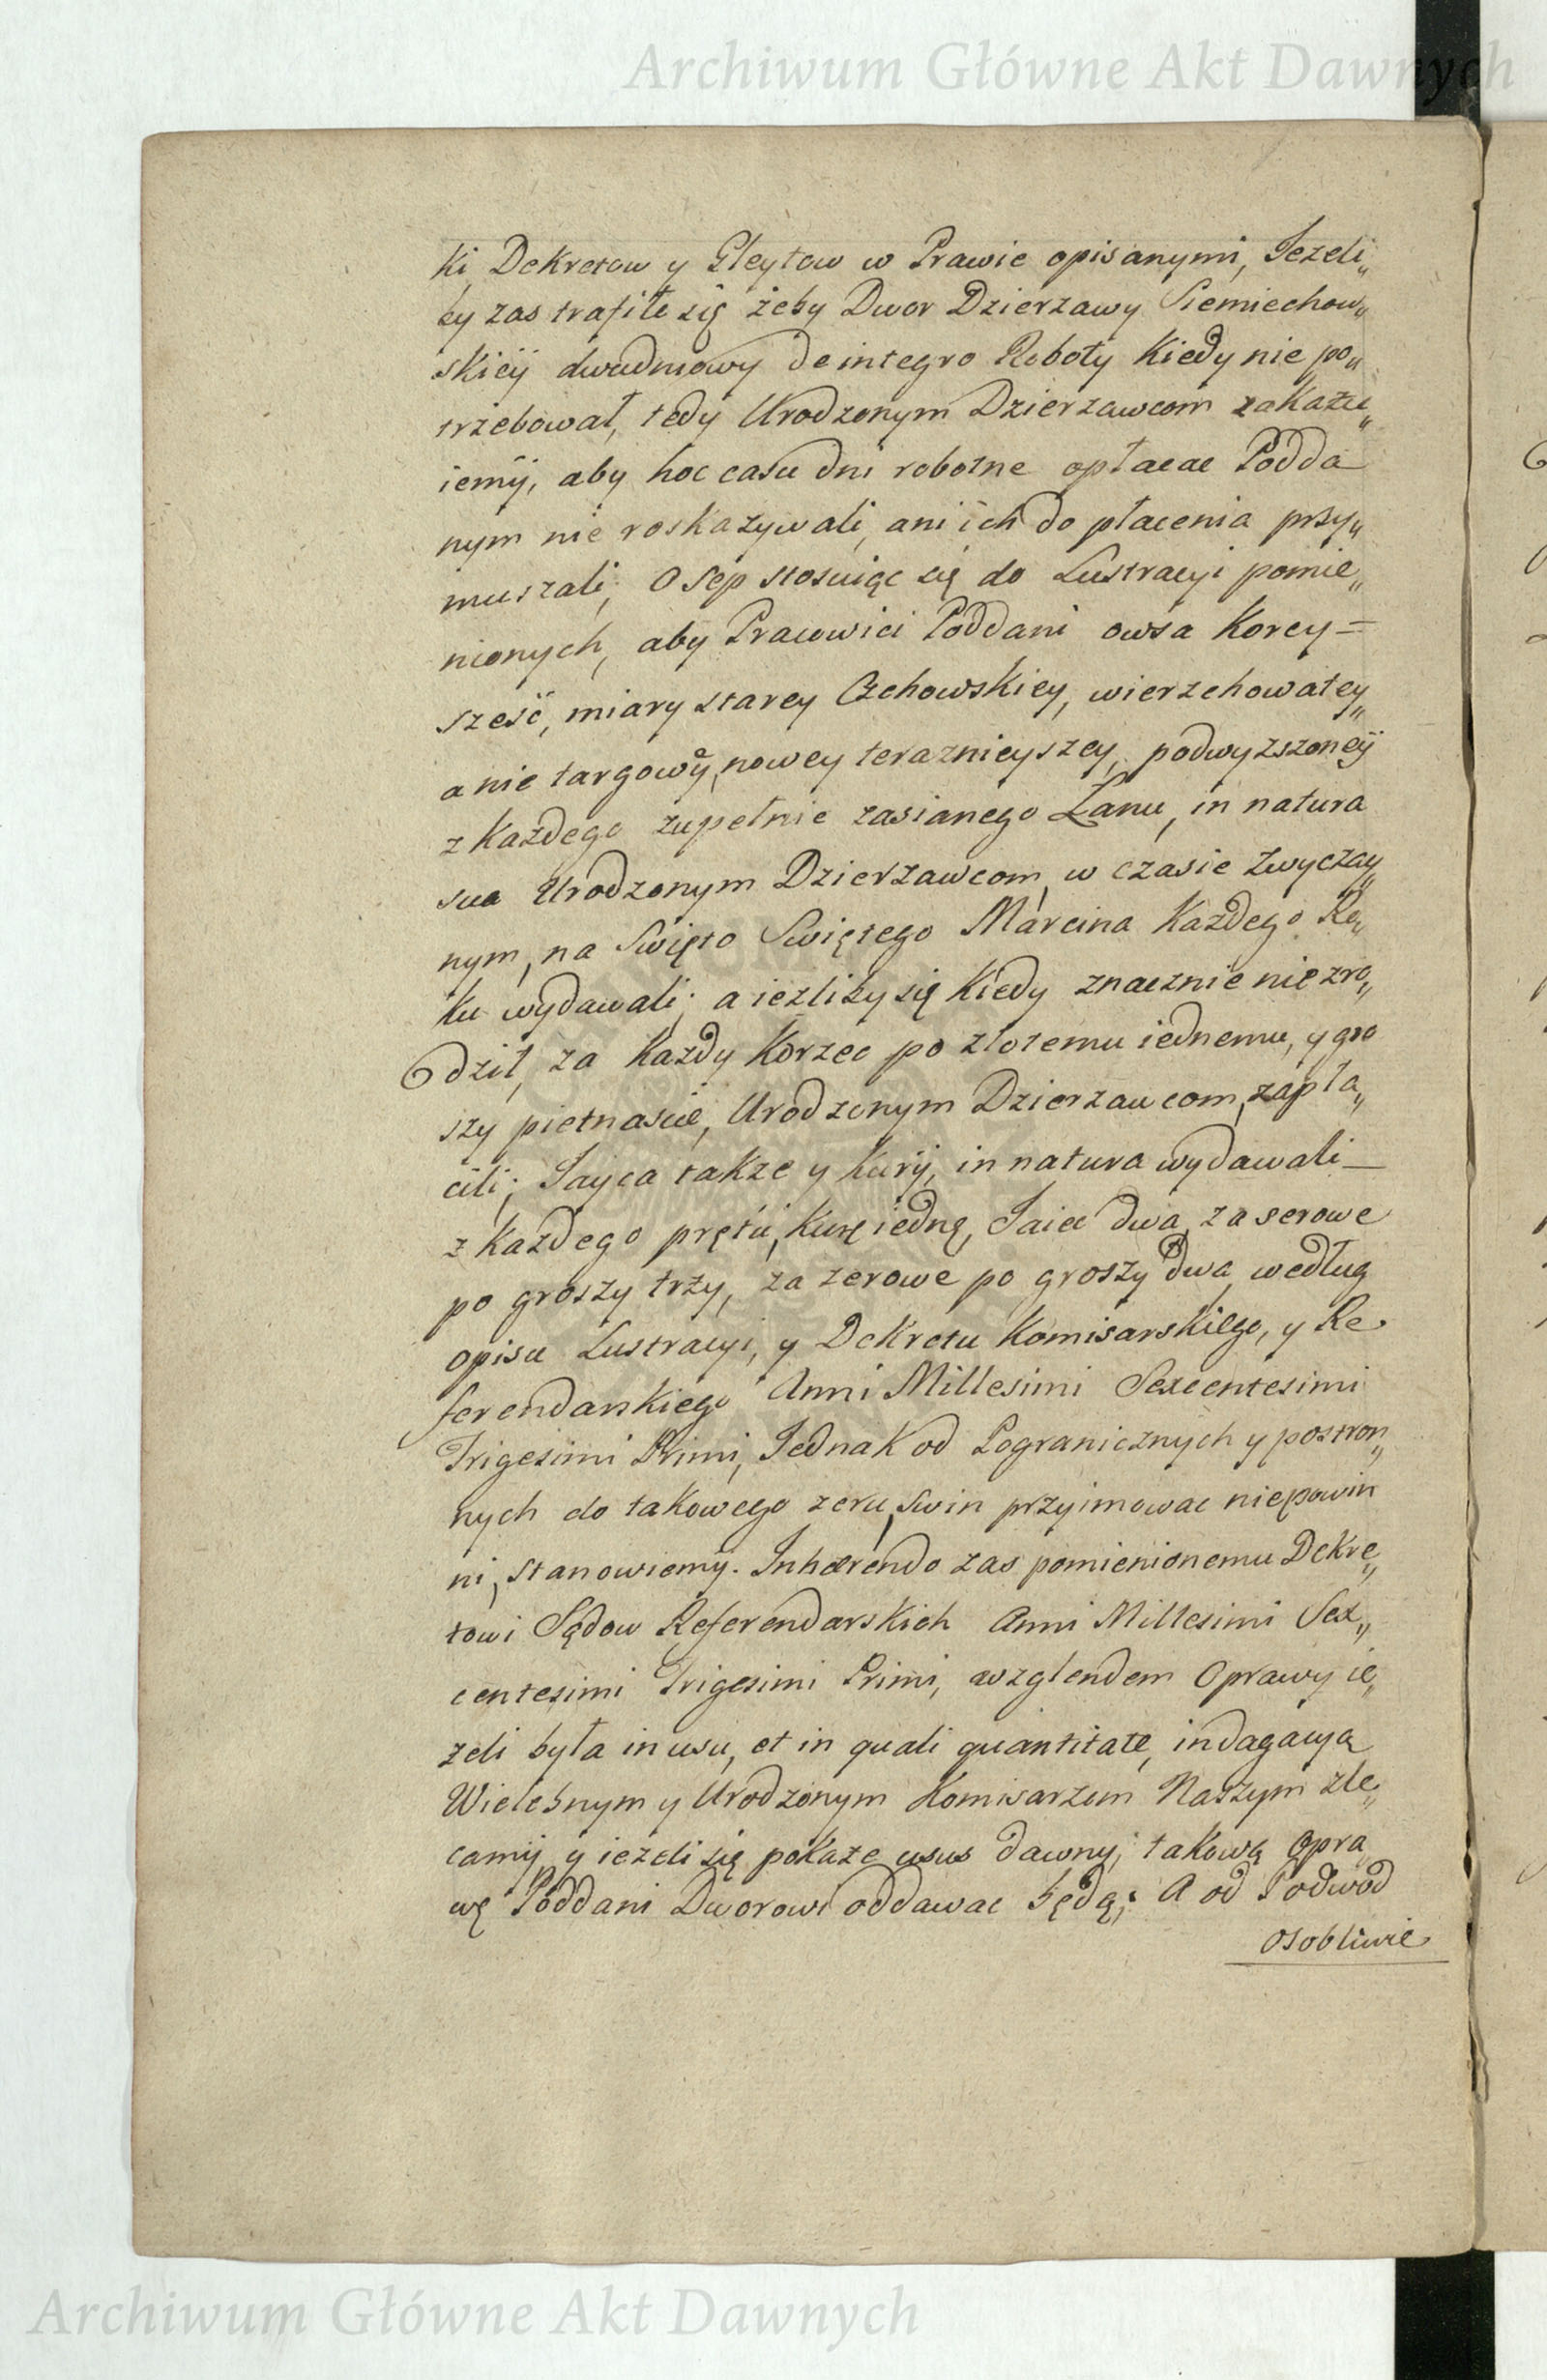 Archiwum Główne Akt Dawnych
ki Dekretow y Gleytow w Prawie opisanymi, Jezeli„
by zas trafiło się żeby Dwor Dzierzawy Siemiechow„
skiey dwudniowy de integro Roboty kiedy nie po„
trzebował, tedy Urodzonym Dzierzawcom zakazu„
iemy, aby hoc casu dni robotne opłacac Podda
nym nie roskazywali, ani ich do płacenia przy„
muszali; Osep stosuiąc się do Lustracyi pomie„
nionych, aby Pracowici Poddani owsa Korcy=
szesć, miary starey Czchowskiey, wierzchowatey„
a nie targowey, nowey teraznieyszey, podwyzszoney
z Kazdego zupełnie zasianego Łanu, in natura
sua Urodzonym Dzierzawcom, w czasie zwyczay„
nym, na Swięto Swiętego Marcina Kazdego Ro„
ku wydawali; a iezliby się kiedy znacznie nie zro„
dził, za Kazdy Korzec po złotemu iednemu, y gro
szy pietnascie, Urodzonym Dzierzawcom, zapła„
cili; Jayca takze y Kury, in natura wydawali—
z Kazdego prętu, Kurę iednę, Jaiec dwa, za serowe
po groszy trzy, za zerowe po groszy dwa, według
opisu Lustracyi, y Dekretu Komisarskiego, y Re
ferendarskiego Anni Millesimi Sexcentesimi
Trigesimi Primi, Jednak od Pogranicznych y postron„
nych do takowego zeru, Swin przyimowac niepowin
ni, stanowiemy. Inhærendo zas pomienionemu Dekre„
towi Sądow Referendarskich Anni Millesimi Sex„
centesimi Trigesimi Primi, wzglendem Oprawy ie„
zeli była in usu, et in quali quantitate, indagacyą
Wielebnym y Urodzonym Komisarzom Naszym zle„
camy, y iezeli się pokaze usus dawny, takową Opra
wę Poddani Dworowi oddawac będą; A od Podwod
osobliwie
Archiwum Główne Akt Dawnych